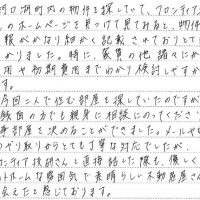 河口湖町内の物件を探していて、フロンティア
のホームページを見つけて見てみると、物件
報がかなり細かく記載されておりとて
かりました。特に、家賃の他諸々にか
用や初期費用までわかり検討しやす
今回二人で住む部屋を探していたのですが
銭面の方でも親身に相談にのってくださり
部屋を決めることができました。メールや
やり取りからとても丁寧な対応でしたが、
ロンティア技研さんと直接話した際も、優しく
ットホームな雰囲気で素晴らしい不動産屋さん
会えたと感じております。